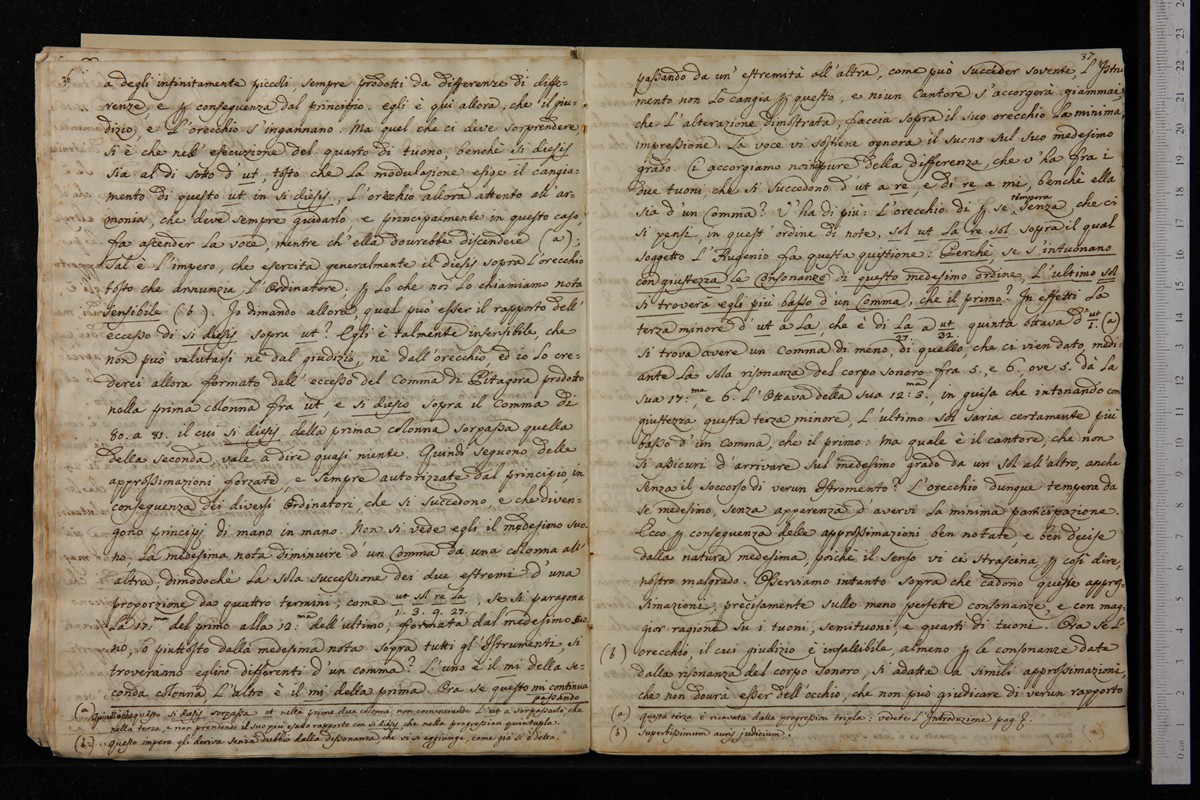 36
a degli infinitamente piccoli, sempre prodotti da differenze di diffe-
renze, e ꝑ conseguenza dal principio. egli è qui allora, che il giu-
dizio, e l'orecchio s'ingannano. Ma quel che ci deve sorprendere
si è che nell'esecuzione del quarto di tuono, benchè si diesis
sia al di sotto d'ut, tosto che la modulazione esige il cangia-
mento di questo ut in si diesis, l'orecchio allora attento all'ar-
monia, che deve sempre guidarlo, e principalmente in questo caso,
fa ascender la voce, mentre ch'ella dovrebbe discendere (a);
Tal è l'impero, che esercita generalmente il diesis sopra l'orecchio
tosto che annunzia l'Ordinatore. ꝑ lo che noi lo chiamiamo nota
sensibile (b). Io dimando allora, qual può esser il rapporto dell'
eccesso di si diesis sopra ut? Egli è talmente insensibile, che
non può valutarsi nè dal giudizio, nè dall'orecchio, ed io lo cre-
derei allora formato dall'eccesso del Comma di Pitagora prodotto
nella prima colonna fra ut, e si diesis sopra il Comma di
80. a 81. il cui si diesis della prima colonna sorpassa quella
della seconda, vale a dire quasi niente. Quindi seguono delle
approssimazioni forzate, e sempre autorizzate dal principio, in
conseguenza dei diversi Ordinatori, che si succedono, e che diven-
gono principj di mano in mano. Non si vede egli il medesimo suo-
no, la medesima nota diminuire d'un Comma da una colonna all'
altra; dimodochè la sola successione dei due estremi d'una
proporzione da quattro termini, come ut sol re la, se si paragona
1. 3. 9. 27.
la 17:ma del primo alla 12:ma dell'ultimo, formata dal medesimo suo-
no, o piuttosto dalla medesima nota sopra tutti gl'Istrumenti, si
troveranno eglino differenti d'un comma? L'uno è il mi della se-
conda colonna l'altro è il mi della prima. Ora se questo mi continua
passando
(a) questo si diesis sorpassa ut nella prima due colonna, non cominciando l'ut a sorpassarlo, che
nella terza, e non prendendo il suo più esado rapporto con si diesis, che nella progression quintupla.
(b) questo impero gli deriva senza dubbio dalla dissonanza che vi si aggiunge, come già si è detto.
37
passando da un'estremità all'altra, come può succeder sovente, l'Istru-
mento non lo cangia ꝑ questo, e niun Cantore s'accorgerà giammai,
che l'alterazione dimostrata, faccia sopra il suo orecchio la minima
impressione. La voce vi sostiene ognora il suono sul suo medesimo
grado. Ci accorgiamo noi pure della differenza, che v'ha fra i
due tuoni, che si succedono d'ut a re, e di re a mi, benchè ella
sia d'un Comma? V'ha di più: l'orecchio di ꝑ se, tempora senza, che ci
si pensi, in quest'ordine di note, sol ut la re sol sopra il qual
soggetto l'Hugenio fa questa questione: Perchè, se s'intuonano
con giustezza le Consonanze di questo medesimo ordine, l'ultimo sol
si troverà egli più basso d'un Comma, che il primo? In effetti la
terza minore d'ut a la, che è di la a ut quinta ottava d'ut (a)
27. 32 1.
si trova avere un Comma di meno, di quello, che ci vien dato, medi-
ante la sola risonanza del corpo sonoro fra 5, e 6. ove 5. dà la
sua 17:ma, e 6. l'Ottava della sua 12:ma: 3., in guisa che intonando con
giustezza questa terza minore, l'ultimo sol saria certamente più
basso d'un comma, che il primo: Ma quale è il cantore, che non
si assicuri d'arrivare sul medesimo grado da un sol all'altro, anche
senza il soccorso di verun Istromento? L'orecchio dunque tempera da
se medesimo, senza apparenza d'avervi la minima participazione.
Ecco ꝑ conseguenza delle approssimazioni ben notate e ben decise
dalla natura medesima, poichè il senso vi ci strascina, ꝑ così dire,
nostro malgrado. Osserviamo intanto sopra che cadono queste appros-
simazioni, precisamente sulle meno perfette consonanze, e con mag-
gior ragione su i tuoni, semituoni, e quarti di tuoni. Ora se l'
(b) orecchio, il cui giudizio è infallibile, almeno ꝑ le consonanze data
dalla risonanza del corpo sonoro, si adatta a simili approssimazioni,
che non dourà esser dell'occhio, che non può giudicare di verun rapporto
(a) questa terza è ricavata dalla progression tripla: vedete l'Introduzione pag. 8.
(b) superbissimum auris judicium.